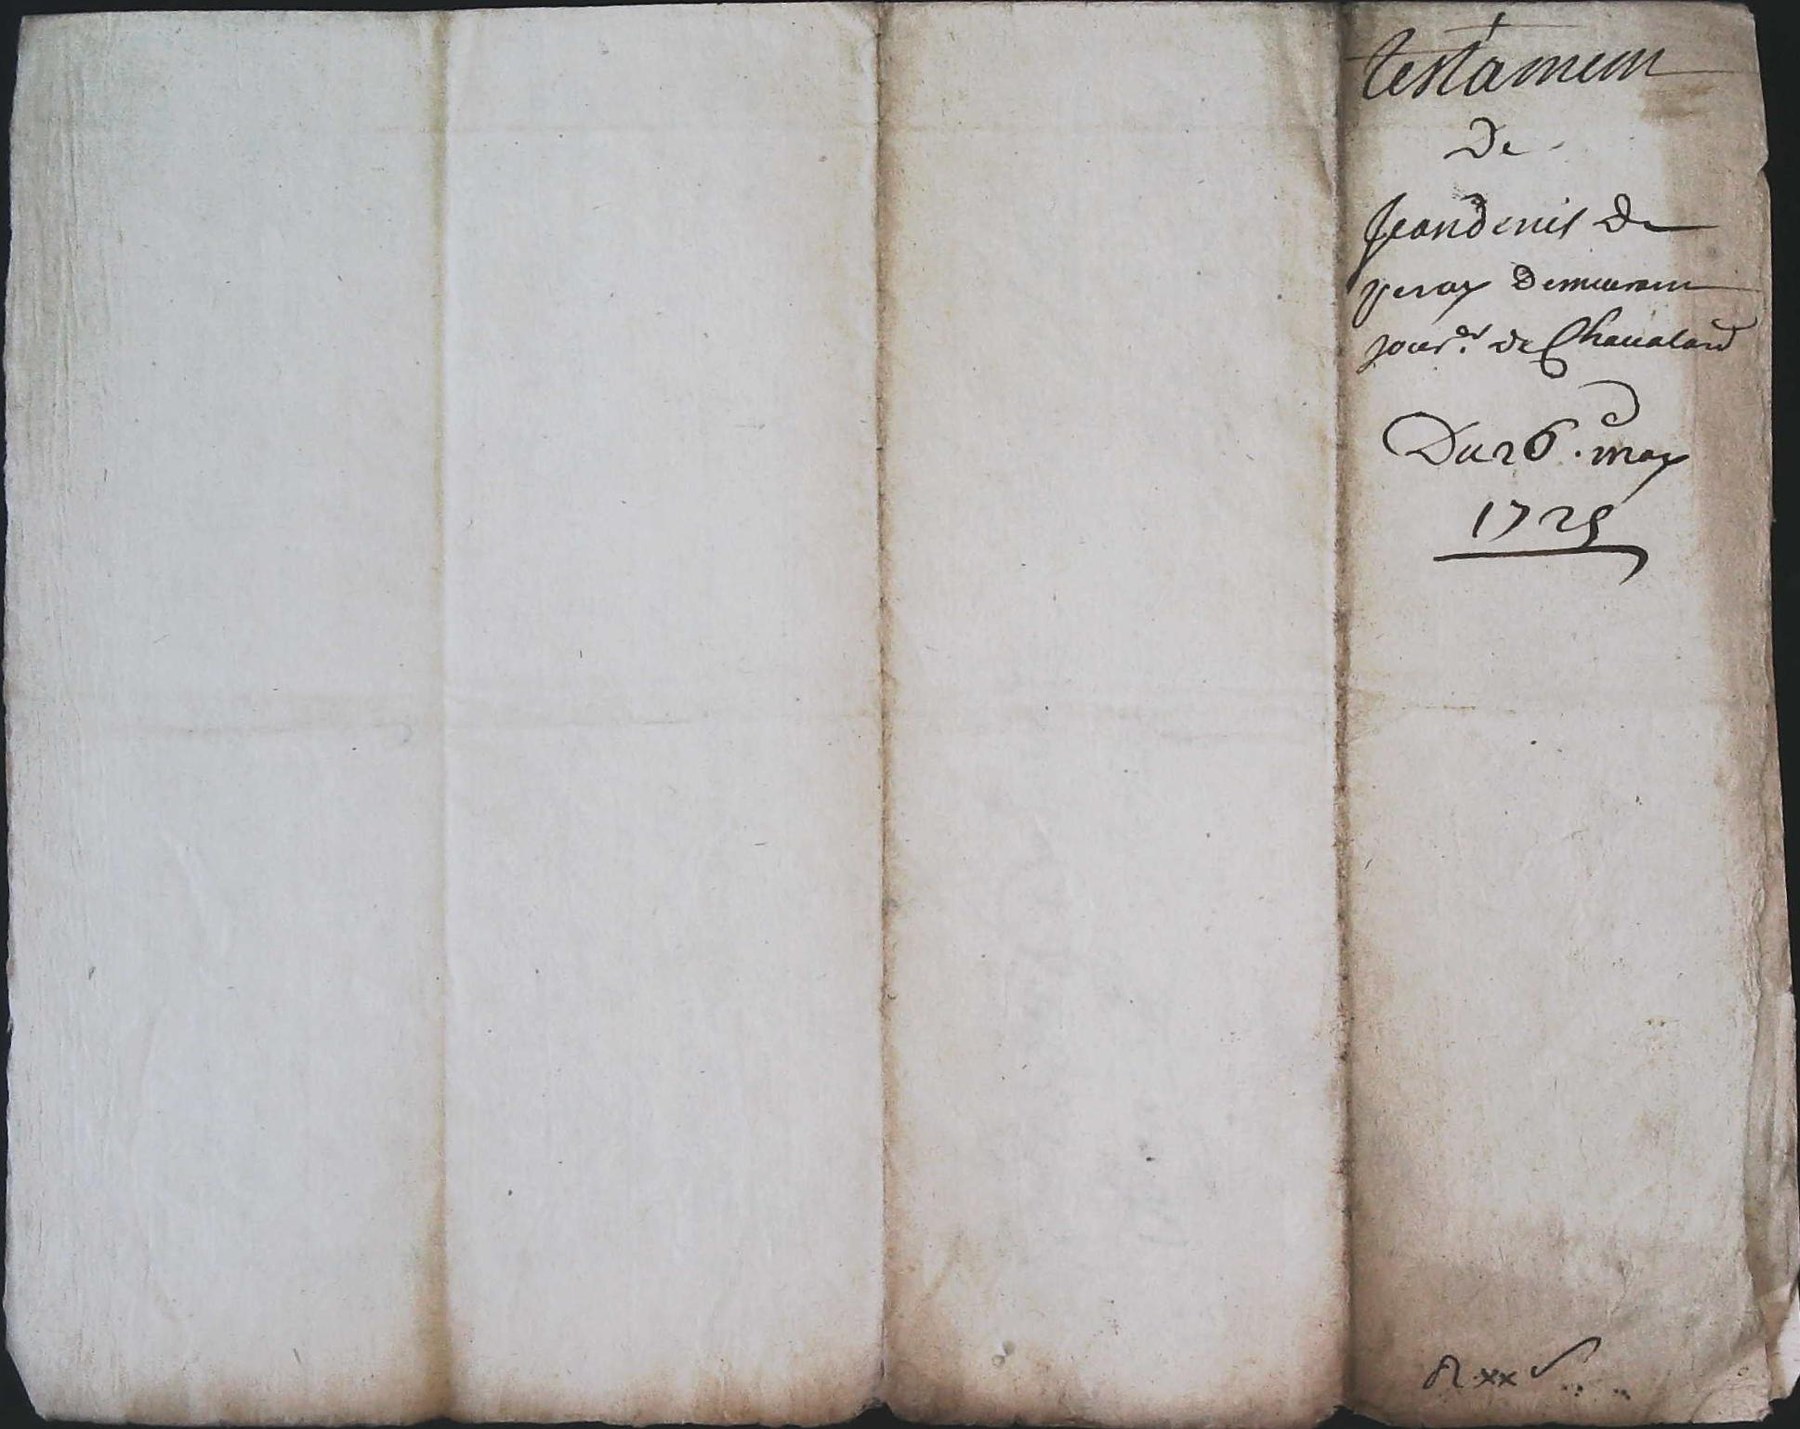 testament
De
Jean denis de
veras demeurant
de Chavaland
Du 26. may
1725
xx